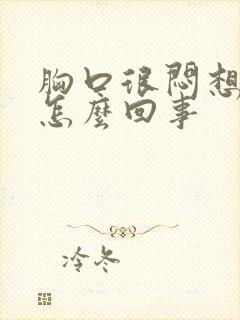 胸口很悶想
怎麼回事
冷冬